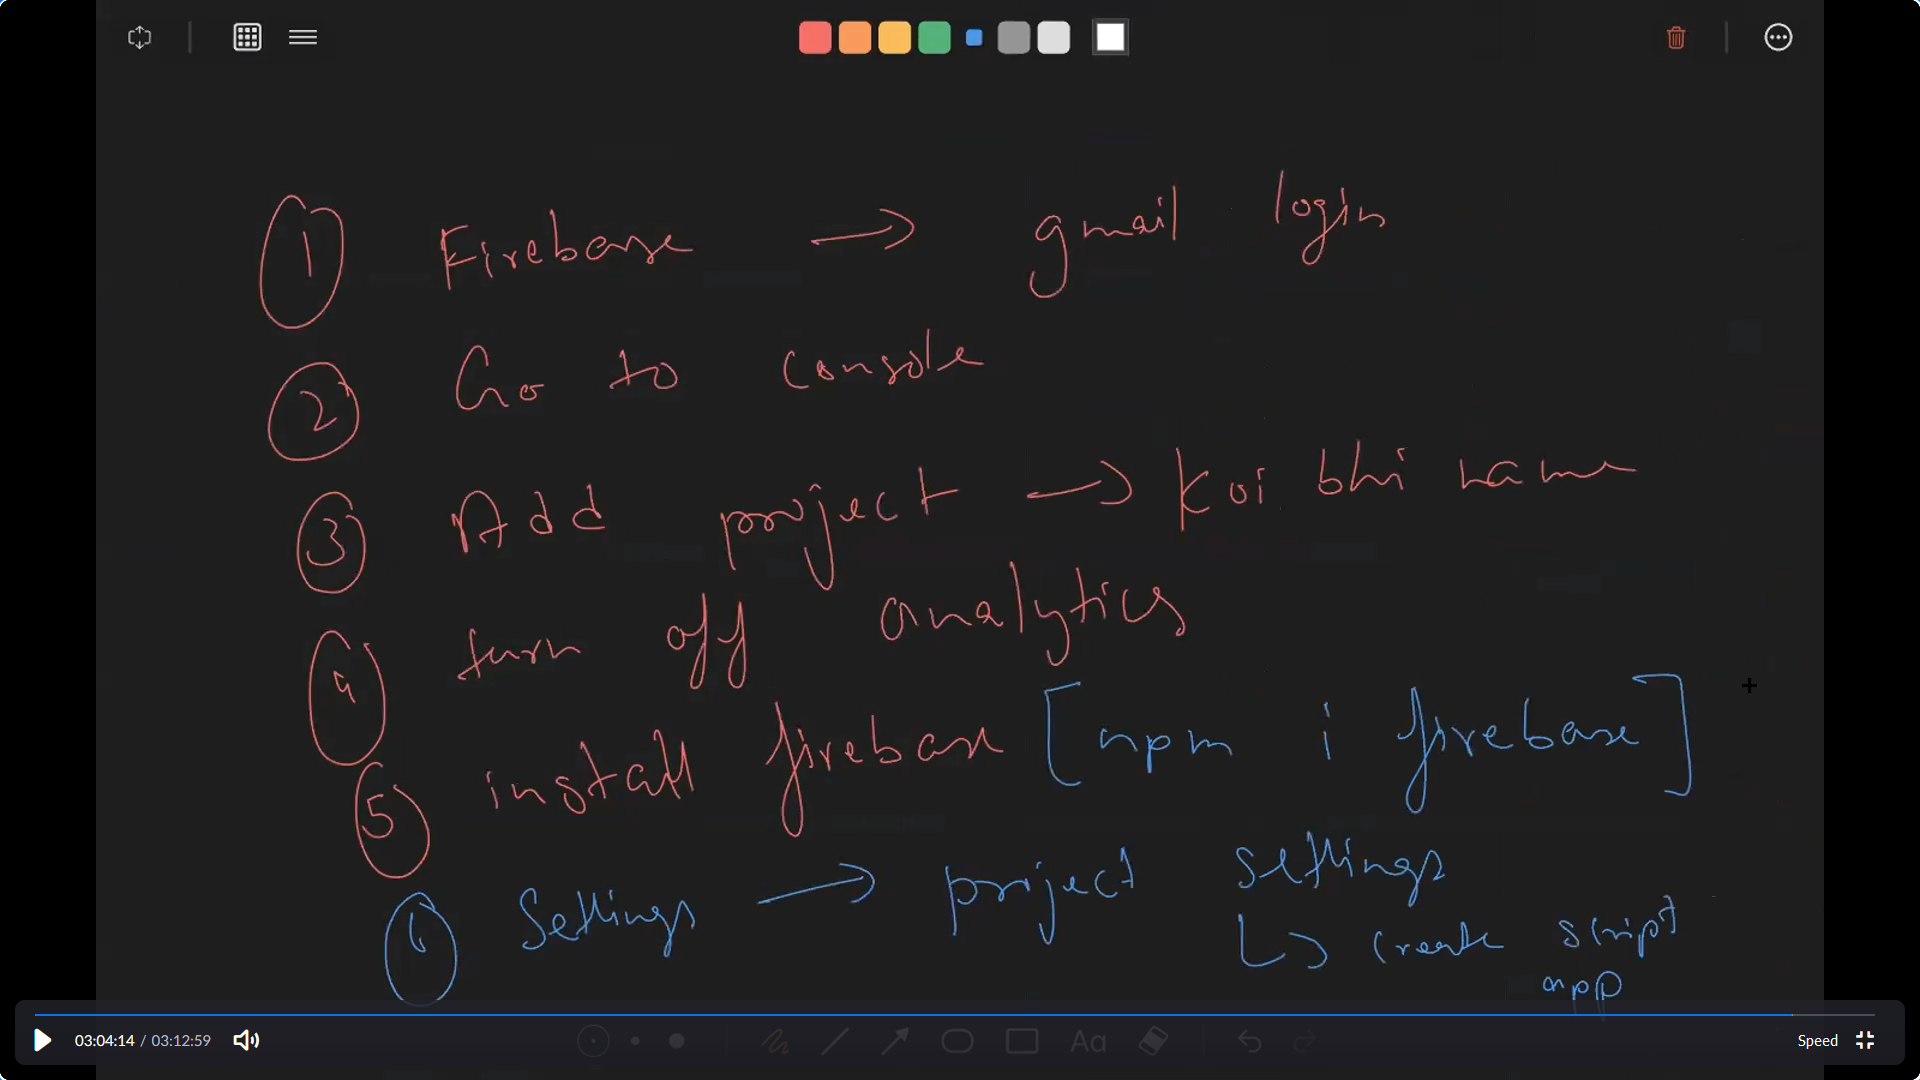 1 Firebase → gmail login
2 Go to console
3 Add project → Koi bhi name
4 turn off analytics
5 install firebase [npm i firebase]
6 Settings → project settings
↳ create script
app
03:04:14 / 03:12:59
Aa
Speed